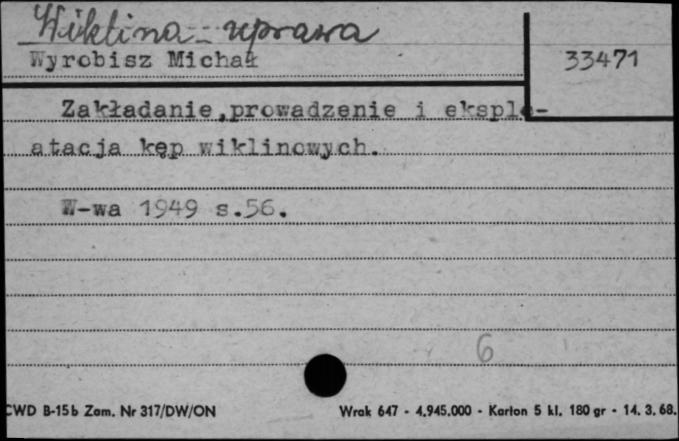 Wiklina - uprawa
Wyrobisz Michał
33471
Zakładanie,prowadzenie i eksplo-
atacja kęp wiklinowych.
W-wa 1949 s.56.
6
CWD B-15b Zam. Nr 317/DW/ON
Wrak 647 - 4.945.000 - Karton 5 kl. 180 gr - 14. 3. 68.